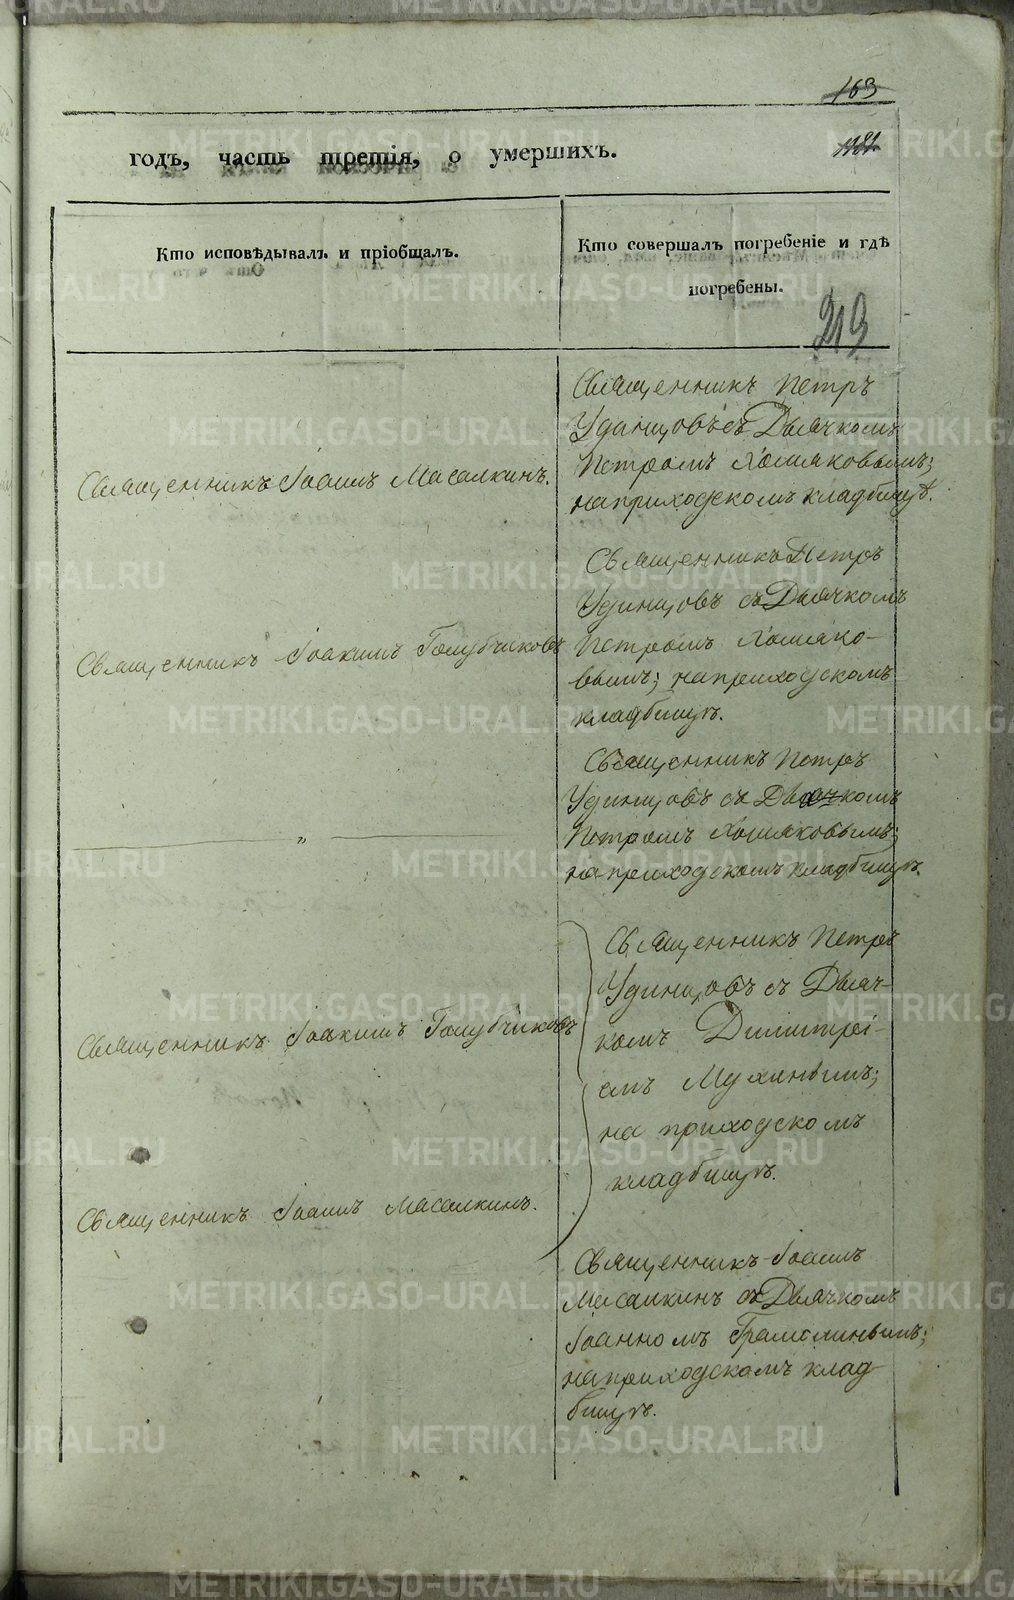 163
годъ, часть третія, о умершихъ.
Кто исповѣдывалъ и пріобщалъ.
Кто совершалъ погребеніе и гдѣ
погребены.
213
Священникъ Петръ
Удинцовъ съ Дьячкомъ
Петромъ Хомяковымъ;
на приходскомъ кладбищѣ.
Священникъ Іоаннъ Масалкинъ.
Священникъ Петръ
Удинцовъ съ Дьячкомъ
Петромъ Хомяко-
вымъ; на приходскомъ
кладбищѣ.
Священникъ Іоакимъ Голубчиковъ
Священникъ Петръ
Удинцовъ съ Дьячкомъ
Петромъ Хомяковымъ;
на приходскомъ кладбищѣ.
„
Священникъ Петръ
Удинцовъ съ Дьяч-
комъ Димитрі-
емъ Мухинымъ;
на приходскомъ
кладбищѣ.
Священникъ Іоакимъ Голубчиковъ
Священникъ Іоаннъ Масалкинъ.
Священникъ Іоаннъ
Масалкинъ съ Дьячкомъ
Іоанномъ
на приходскомъ клад
бищѣ.
METRIKI.GASO-URAL.RU